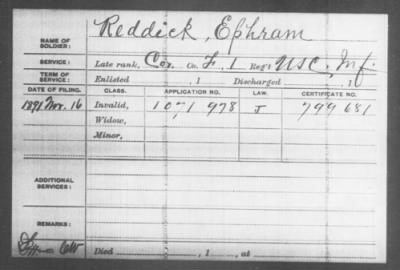 Reddick, Ephram
NAME OF SOLDIER:
SERVICE: Late rank, Cor. Co. F, 1 Reg't USC. Inf.
TERM OF SERVICE: Enlisted , 1 Discharged , 1
DATE OF FILING. CLASS. APPLICATION NO. LAW. CERTIFICATE NO.
1891 Nov. 16 Invalid, 1071 978 J 799 681
Widow,
Minor,
ADDITIONAL SERVICES:
REMARKS:
Died , 1 , at